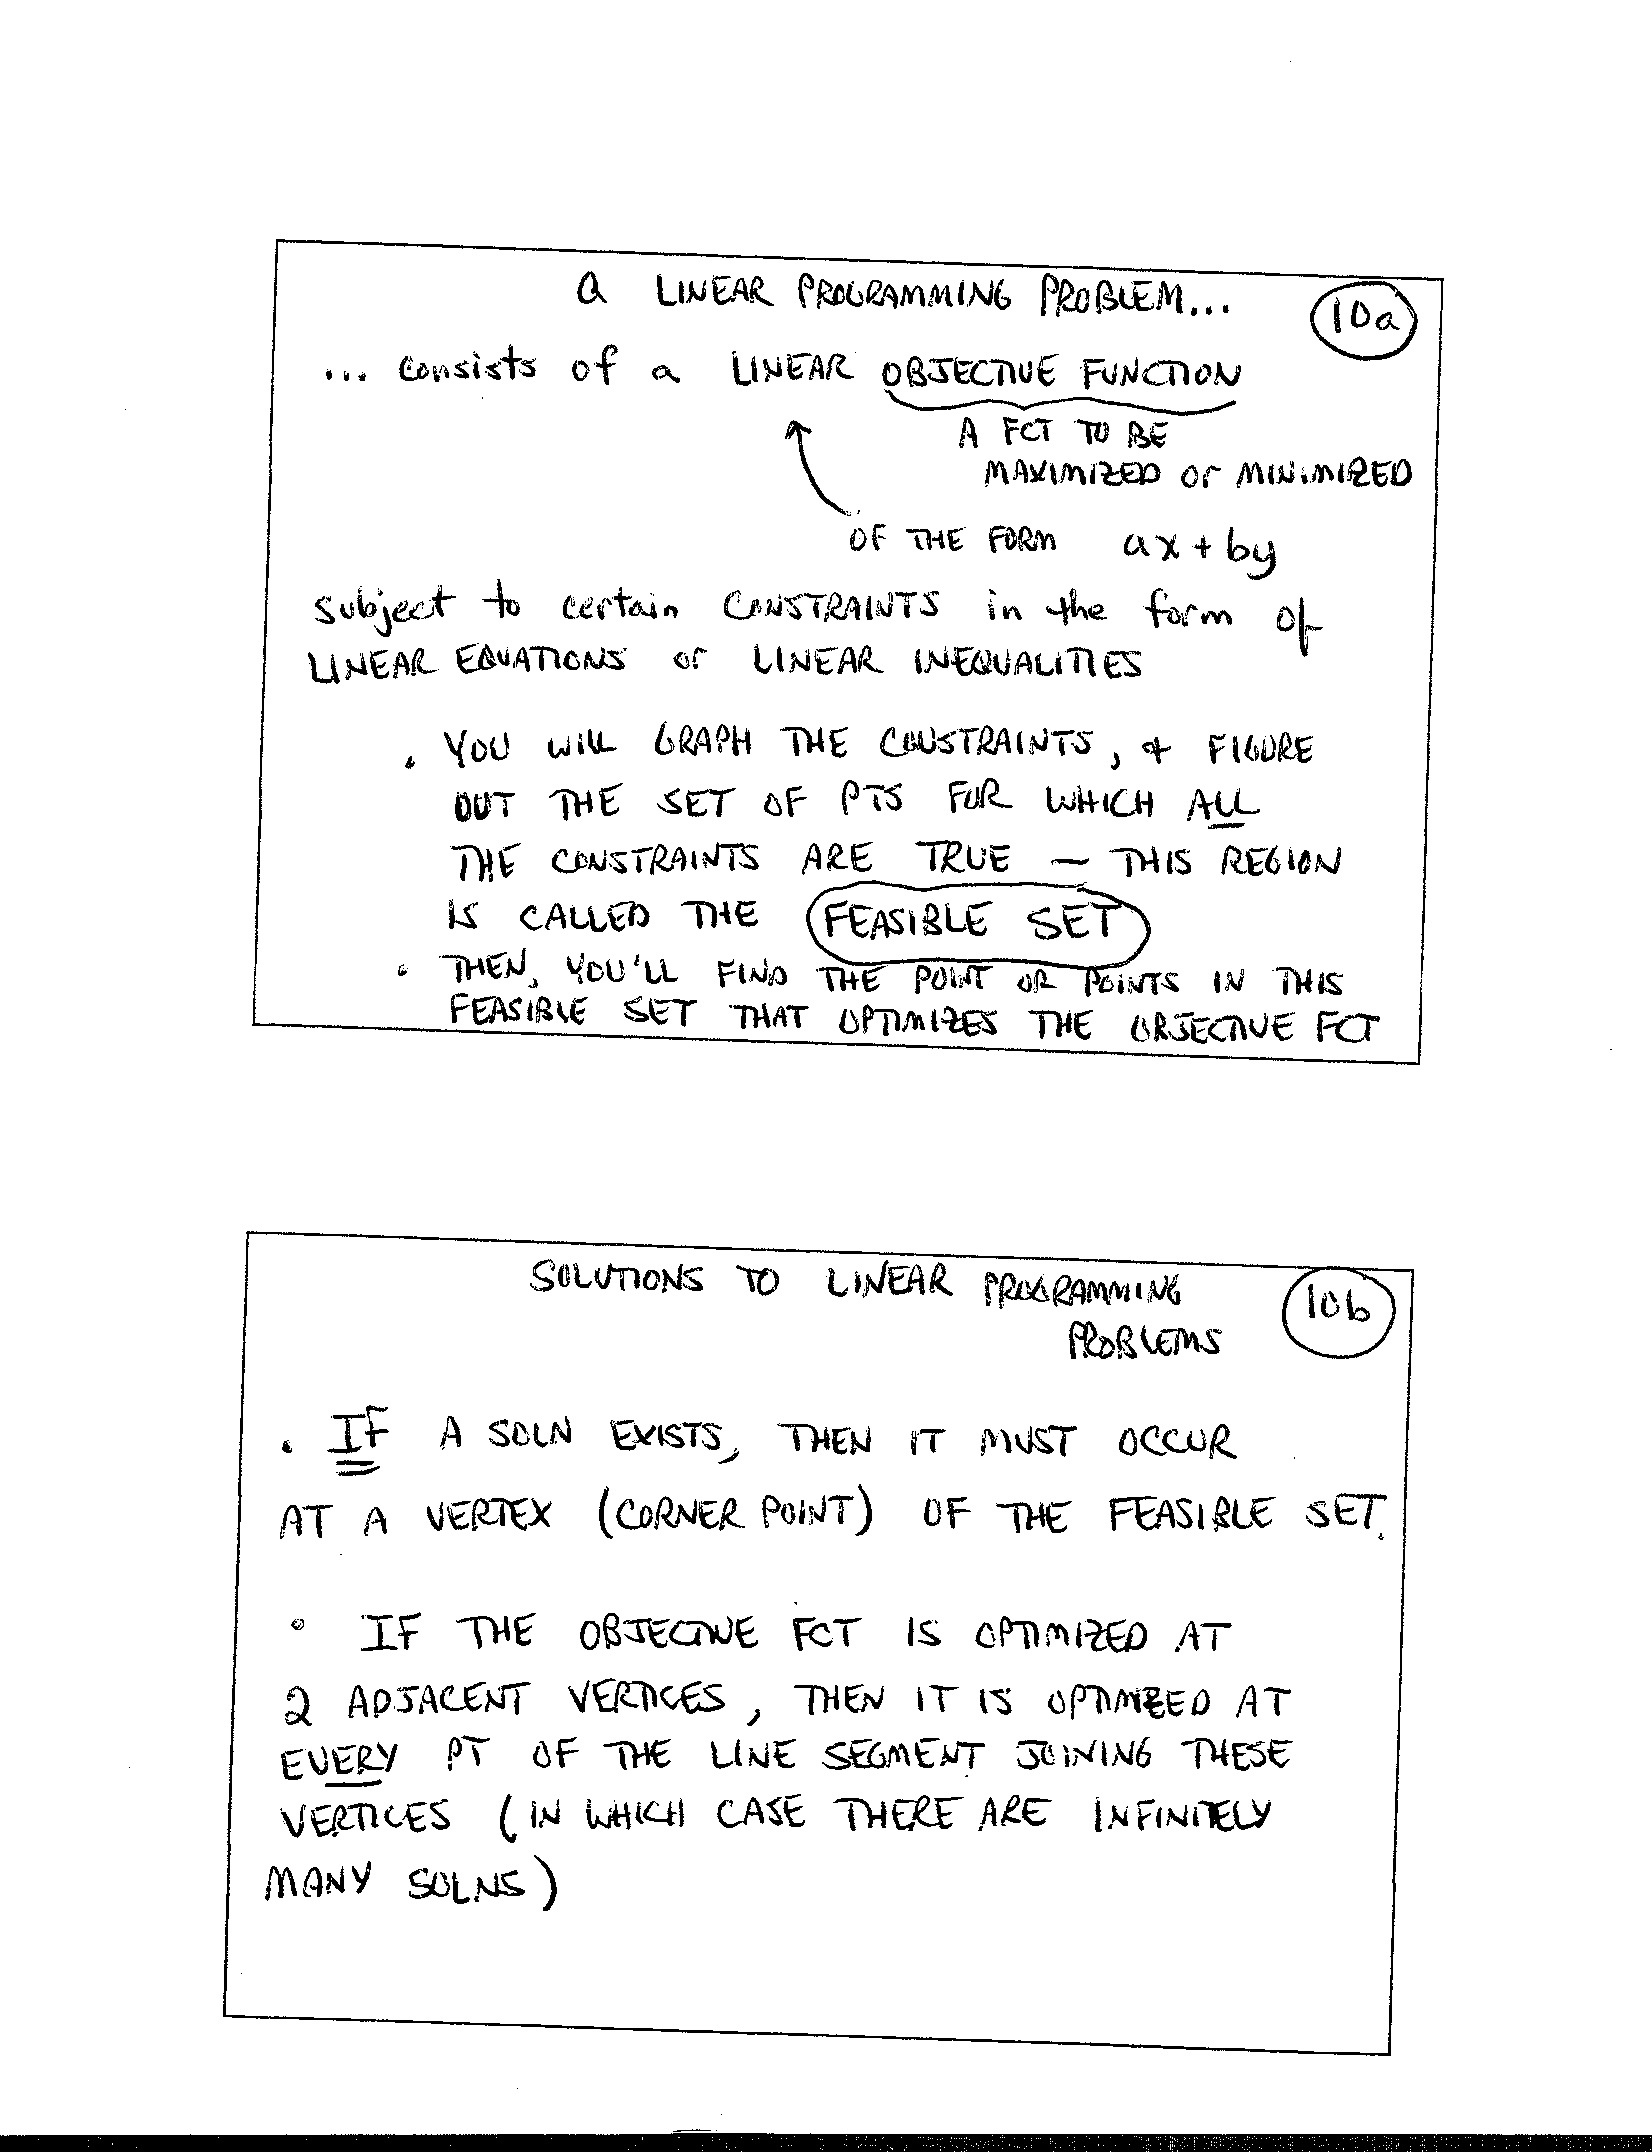 a LINEAR PROGRAMMING PROBLEM...
10a
... consists of a LINEAR OBJECTIVE FUNCTION
A FCT TO BE
MAXIMIZED or MINIMIZED
OF THE FORM ax + by
subject to certain CONSTRAINTS in the form of
LINEAR EQUATIONS or LINEAR INEQUALITIES
• YOU WILL GRAPH THE CONSTRAINTS, + FIGURE
OUT THE SET OF PTS FOR WHICH ALL
THE CONSTRAINTS ARE TRUE — THIS REGION
IS CALLED THE FEASIBLE SET
• THEN, YOU'LL FIND THE POINT OR POINTS IN THIS
FEASIBLE SET THAT OPTIMIZES THE OBJECTIVE FCT
SOLUTIONS TO LINEAR PROGRAMMING
PROBLEMS
10b
• IF A SOLN EXISTS, THEN IT MUST OCCUR
AT A VERTEX (CORNER POINT) OF THE FEASIBLE SET.
• IF THE OBJECTIVE FCT IS OPTIMIZED AT
2 ADJACENT VERTICES, THEN IT IS OPTIMIZED AT
EVERY PT OF THE LINE SEGMENT JOINING THESE
VERTICES (IN WHICH CASE THERE ARE INFINITELY
MANY SOLNS)